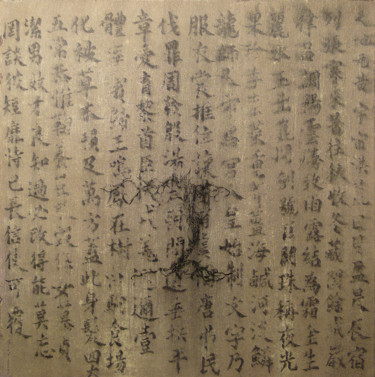 天地玄黃宇宙洪荒日月盈昃辰宿
列張寒來暑往秋收冬藏閏餘成歲
律呂調陽雲騰致雨露結為霜金生
麗水玉出崑岡劍號巨闕珠稱夜光
果珍李柰菜重芥薑海鹹河淡鱗
龍師火帝鳥官人皇始制文字乃
服衣裳推位讓國唐弔民
伐罪周發殷湯坐朝問道垂拱平
章愛育黎首臣伏戎羌遐邇壹
體率賓歸王鳴鳳在樹白駒食場
化被草木賴及萬方蓋此身髮四大
五常恭惟鞠養豈敢毀傷女慕貞
潔男效才良知過必改得能莫忘
罔談彼短靡恃己長信使可覆